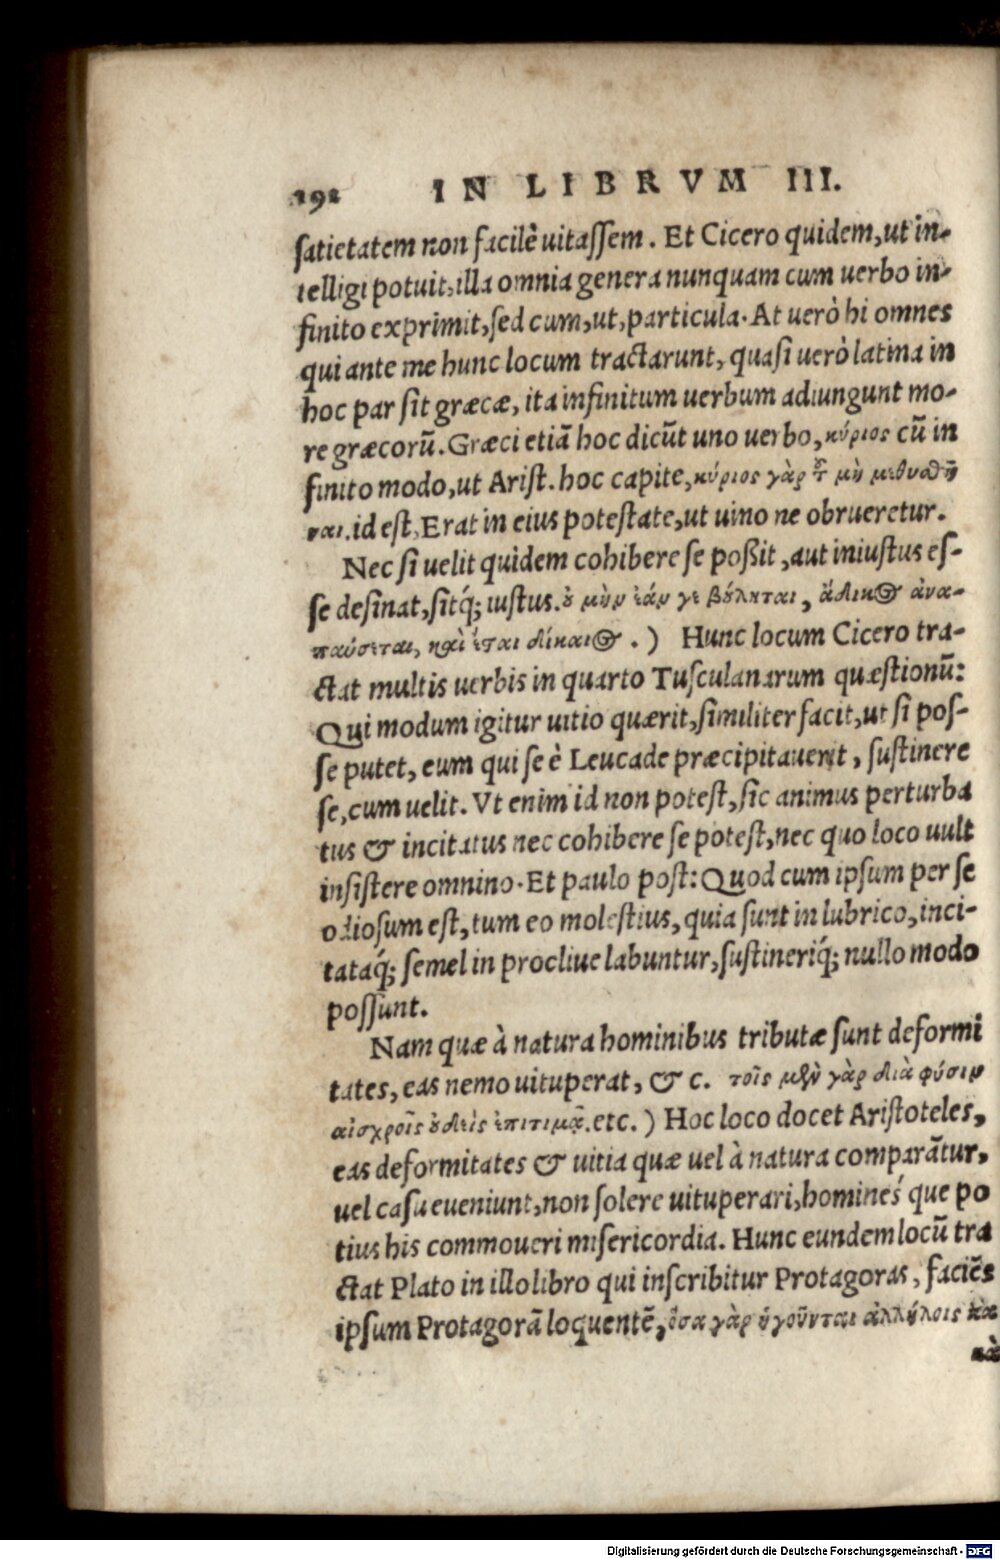 192 IN LIBRVM III.
ſatietatem non facilè uitaſſem. Et Cicero quidem, ut in-
telligi potuit, illa omnia genera nunquam cum uerbo in-
finito exprimit, ſed cum, ut, particula. At uerò hi omnes
qui ante me hunc locum tractarunt, quaſi uerò latina in
hoc par ſit græcæ, ita infinitum uerbum adiungunt mo-
re græcorū. Græci etiā hoc dicūt uno uerbo, κύριος cū in
finito modo, ut Ariſt. hoc capite, κύριος γὰρ ἦν μὴ μεθυσθῆ
ναι. id eſt, Erat in eius poteſtate, ut uino ne obrueretur.
Nec ſi uelit quidem cohibere ſe poßit, aut iniuſtus eſ-
ſe deſinat, ſitq́; iuſtus. οὐ μὴν ἐάν γε βούληται, ἄδικος ὢν ἀνα-
παύσεται, καὶ ἔσται δίκαιος. ) Hunc locum Cicero tra-
ctat multis uerbis in quarto Tuſculanarum quæſtionū:
Qui modum igitur uitio quærit, ſimiliter facit, ut ſi poſ-
ſe putet, eum qui ſe è Leucade præcipitauerit, ſuſtinere
ſe, cum uelit. Vt enim id non poteſt, ſic animus perturba
tus & incitatus nec cohibere ſe poteſt, nec quo loco uult
inſiſtere omnino. Et paulo poſt: Quod cum ipſum per ſe
odioſum eſt, tum eo moleſtius, quia ſunt in lubrico, inci-
tataq́; ſemel in procliue labuntur, ſuſtineriq́; nullo modo
poſſunt.
Nam quæ à natura hominibus tributæ ſunt deformi
tates, eas nemo uituperat, & c. τοῖς μὲν γὰρ διὰ φύσιν
αἰσχροῖς οὐδεὶς ἐπιτιμᾷ. etc. ) Hoc loco docet Ariſtoteles,
eas deformitates & uitia quæ uel à natura comparātur,
uel caſu eueniunt, non ſolere uituperari, homineś que po
tius his commoueri miſericordia. Hunc eundem locū tra
ctat Plato in illo libro qui inſcribitur Protagoras, faciēs
ipſum Protagorā loquentē, ὅσα γὰρ ἡγοῦνται ἀλλήλοις κα
κὰ
Digitalisierung gefördert durch die Deutsche Forschungsgemeinschaft - DFG